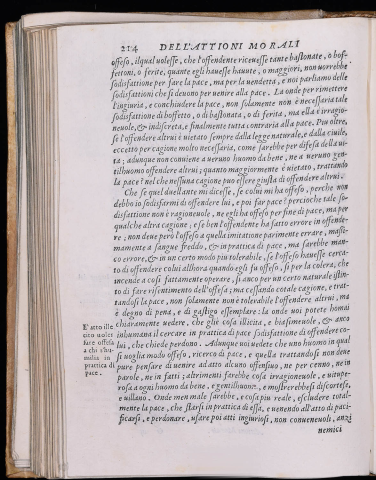 214 DELL'ATTIONI MORALI
offeso, ilqual uolesse, che l'offendente riceuesse tante bastonate, o bof-
fettoni, o ferite, quante egli hauesse hauute, o maggiori, non uorrebbe
sodisfattione per fare la pace, ma per la uendetta, e noi parliamo delle
sodisfattioni che si deuono per uenire alla pace. La onde per rimettere
l'ingiuria, e conchiudere la pace, non solamente non è necessaria tale
sodisfattione di boffetto, o di bastonata, o di ferita, ma ella è irragio-
neuole, & indiscreta, e finalmente tutta contraria alla pace. Piu oltre,
se l'offendere altrui è uietato sempre dalla legge naturale, e dalla ciuile,
eccetto per cagione molto necessaria, come sarebbe per difesa della ui-
ta; adunque non conuiene a neruno huomo da bene, ne a neruno gen-
tilhuomo offendere altrui; quanto maggiormente è uietato, trattando
la pace? nel che nessuna cagione puo essere giusta di offendere altrui.
Che se quel duellante mi dicesse, se colui mi ha offeso, perche non
debbo io sodisfarmi di offendere lui, e poi far pace? percioche tale so-
disfattione non è ragioneuole, ne egli ha offeso per fine di pace, ma per
qualche altra cagione; e se ben l'offendente ha fatto errore in offende-
re; non deue però l'offeso a quella imitatione parimente errare, massi-
mamente a sangue freddo, & in prattica di pace, ma sarebbe man-
co errore, & in un certo modo piu tolerabile, se l'offeso hauesse cerca-
to di offendere colui allhora quando egli fu offeso, si per la colera, che
incende a cosi fattamente operare, si anco per un certo naturale istin-
to di fare risentimento dell'offesa; ma cessando cotale cagione, e trat-
tandosi la pace, non solamente non è tolerabile l'offendere altrui, ma
è degno di pena, e di gastigo essemplare: la onde uoi potete homai
chiaramente uedere, che gliè cosa illicita, e biasimeuole, & anco
inhumana il cercare in prattica di pace sodisfattione di offendere co-
lui, che chiede perdono. Adunque uoi uedete che uno huomo in qual
si uoglia modo offeso, ricerco di pace, e quella trattandosi non deue
pure pensare di uenire ad atto alcuno offensiuo, ne per cenno, ne in
parole, ne in fatti; altrimenti sarebbe cosa irragioneuole, e uitupe-
rosa a ogni huomo da bene, e gentilhuomo, e mostrerebbesi discortese,
e uillano. Onde men male sarebbe, e cosa piu reale, escludere total-
mente la pace, che starsi in prattica di essa, e uenendo all'atto di paci-
ficarsi, e perdonare, usare poi atti ingiuriosi, non conueneuoli, anzi
nemici
E atto ille
cito uoler
fare offesa
a chi s'hu-
milia in
prattica di
pace.